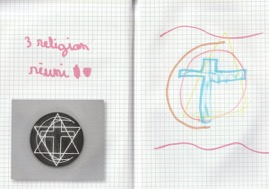 3 religion
réuni